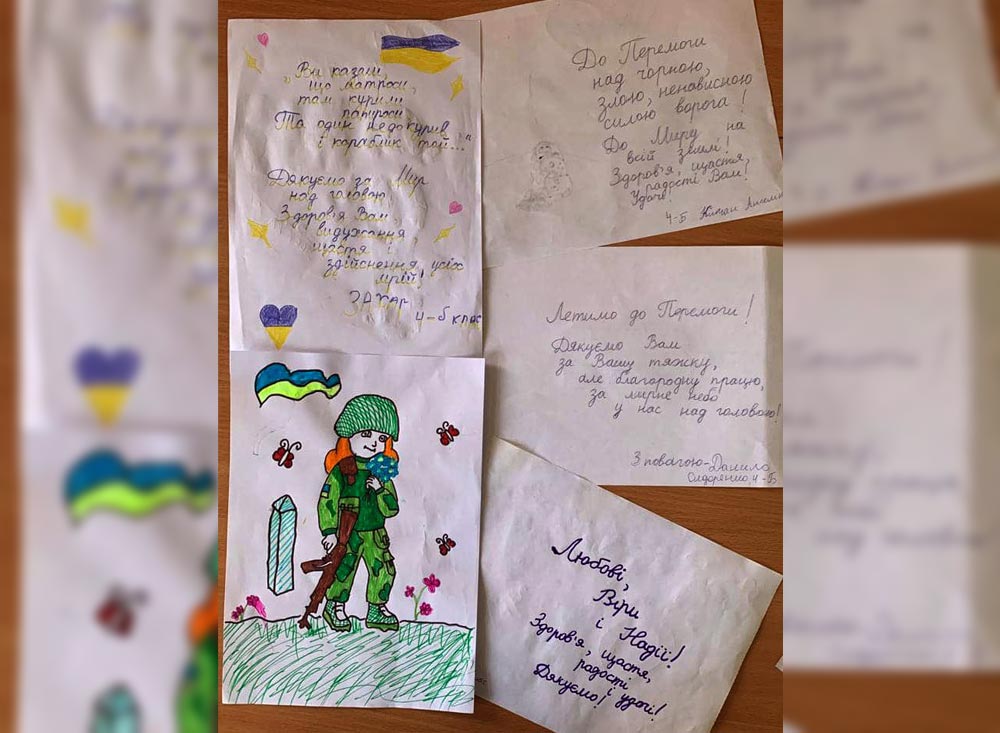 „Ви казали,
що матроси,
там курили
папироси
Та один недокурив
і кораблик той..."
Дякуємо за Мир
над головою,
Здоров'я Вам
видужання,
щастя і
здійснення усіх
мрій!
ЗАХАР
4-Б клас
До Перемоги
над чорною,
злою, ненависною
силою ворога!
До Миру на
всій землі!
Здоров'я, щастя,
радості Вам!
Удачі!
4-Б
Летимо до Перемоги!
Дякуємо Вам
за Вашу тяжку,
але благородну працю,
за мирне небо
у нас над головою!
З повагою-Данило
Сидоренко, 4-Б
Любові,
Віри
і Надії!
Здоров'я, щастя,
радості
і удачі!
Дякуємо!